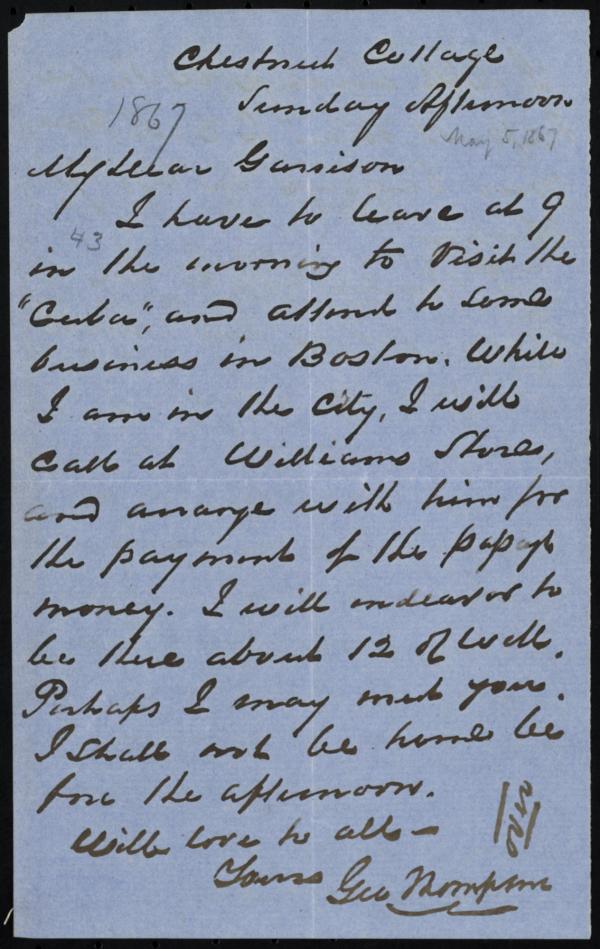 Chestnut Cottage
Sunday Afternoon
1867
May 5, 1867
My Dear Garrison
I have to leave at 9
43
in the morning to visit the
"Cuba", and attend to some
business in Boston. While
I am in the City, I will
call at Williams Stores,
and arrange with him for
the payment of the passage
money. I will endeavor to
be there about 12 o'Clock.
Perhaps I may meet you.
I shall not be home be
fore the afternoon.
With love to all —
Yours Geo Thompson
over